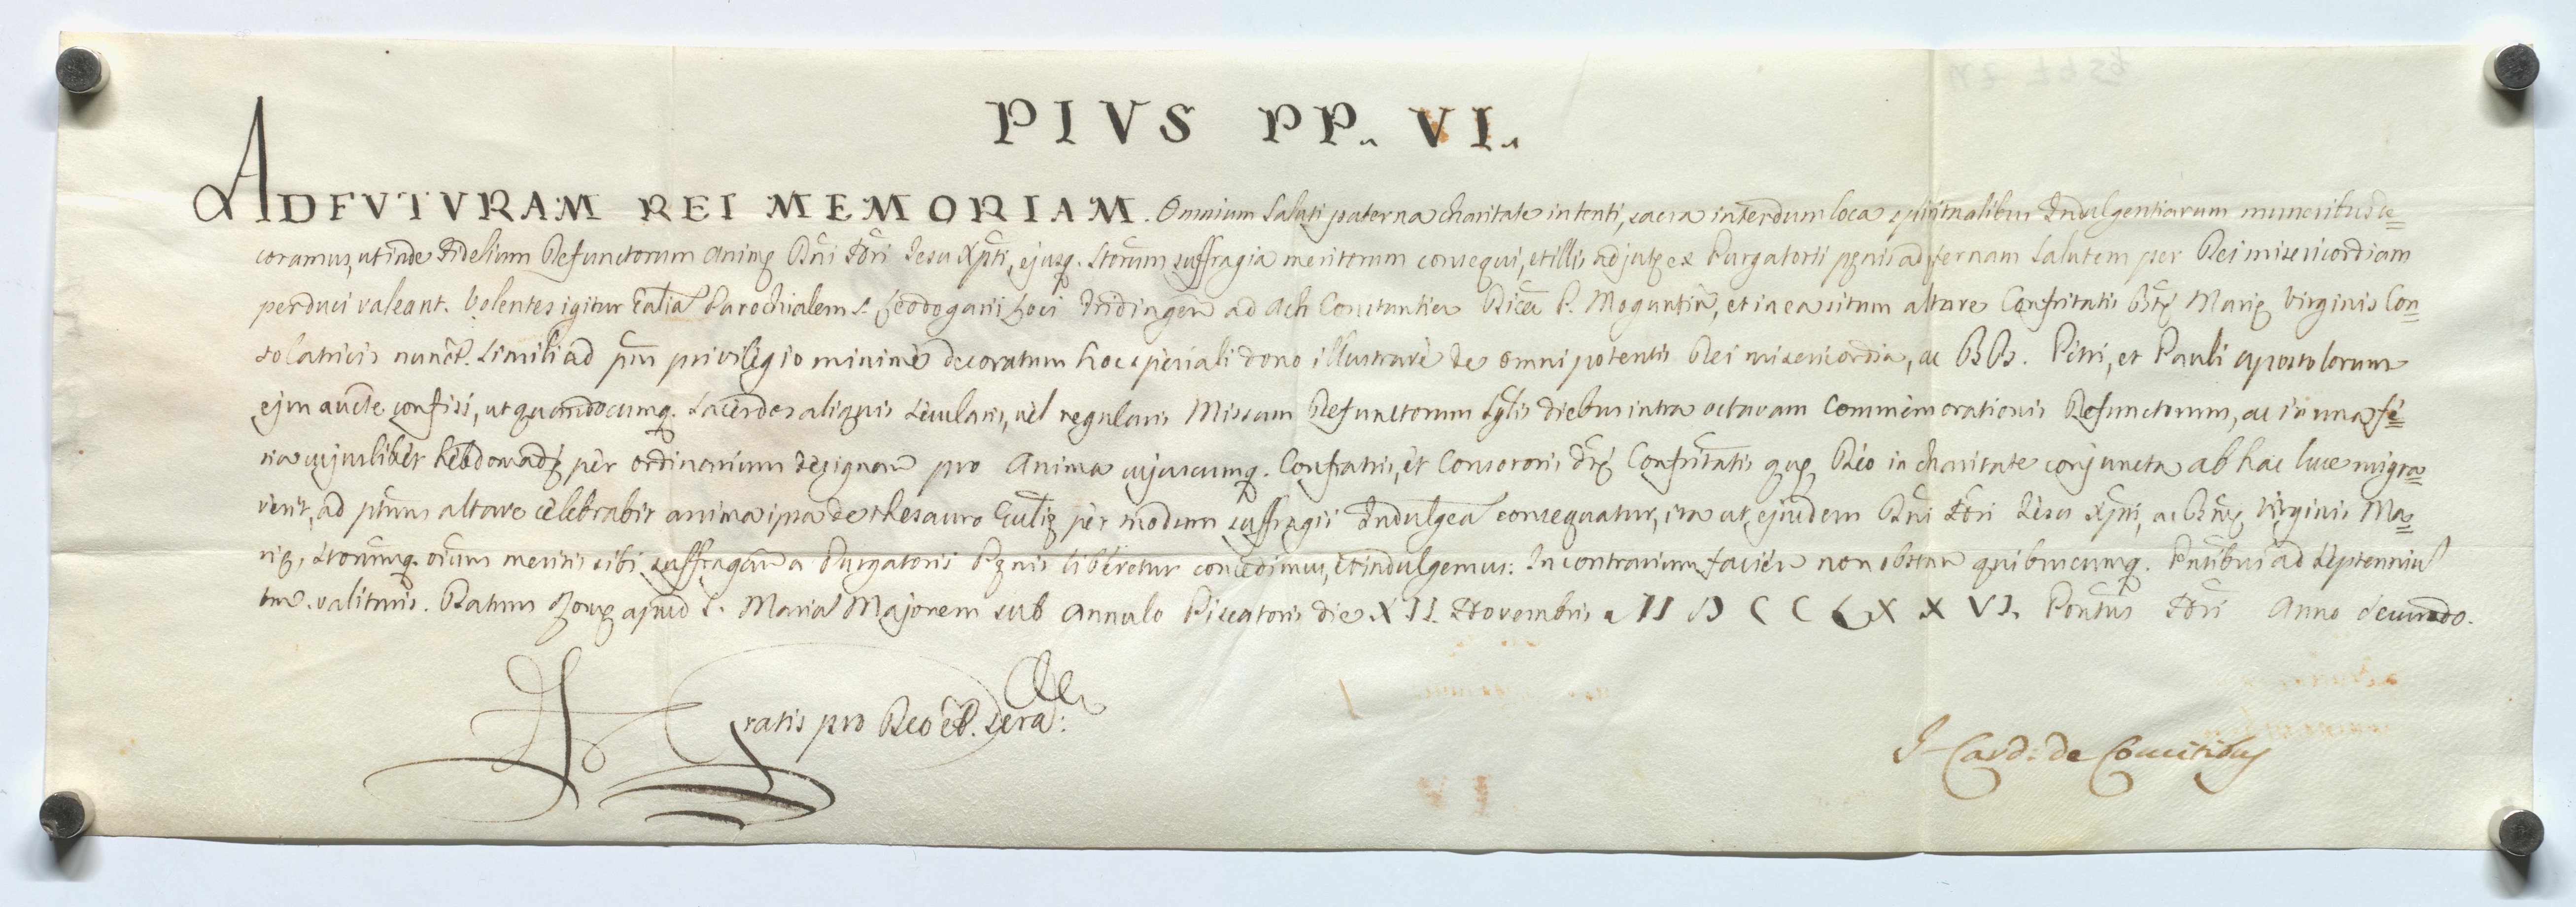 PIVS PP. VI.
AD FVTVRAM REI MEMORIAM. Omnium Saluti paterna charitate intenti, sacra interdum loca spiritualibus Indulgentiarum muneribus de=
coramus, ut inde Fidelium Defunctorum Animę Dñi Nri Jesu Xpti, ejusq. Storum suffragia meritorum consequi, et illis adjutę ex Purgatorii pęnis ad ęternam Salutem per Dei misericordiam
perduci valeant. Volentes igitur Parochialem S. Leodogarii Loci ad Ach Constantien P. Moguntin, et in ea situm altare Confritatis Btę Marię Virginis Con=
solatricis simili ad privilegio minimè decoratum hoc speciali dono illustrare de omnipotentis Dei misericordia, ac BB. Petri, et Pauli apostolorum
ejus aucte confisi, ut quandocumq. Sacerdos aliquis Secularis, vel regularis Missam Defunctorum diebus intra octavam Commemorationis Defunctorum, ac in una fe=
ria cujuslibet hebdomadę per ordinarium designan pro Anima cujuscumq. Confratris, et Consororis dtę Confritatis quę Deo in charitate conjuncta ab hac luce migra=
verit, ad altare celebrabit anima ipsa de thesauro per modum suffragii Indulgea consequatur, ita ut ejusdem Dñi Nri Jesu Xpti, ac Virginis Ma=
rię, Storumq. oium meritis sibi suffragan a Purgatorii Pęnis liberetur concedimus, et indulgemus: In contrarium facien non obstan quibuscumq. ad Septenniu
valituris. Datum Romę apud S. Mariã Majorem sub Annulo Piscatoris die XII. Novembris MDCCLXXVI. Pontus Nri Anno Secundo.
Gratis pro Deo et Scra:
I. Card: de Comitibus